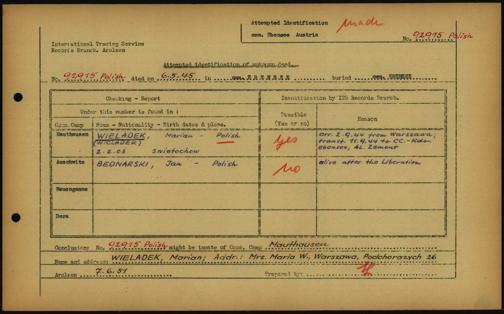 Attempted Identification made
International Tracing Service
Records Branch, Arolsen
cem. Ebensee Austria
No. 92915 Polish
Attempted identification of unknown dead.
No. 92915 Polish died on 6.5.45 in cem. EBENSEE buried cem. EBENSEE
Checking - Report
Identification by ITS Records Branch.
Under this number is found in :
Possible (Yes or no)
Reason
Conc.Camp
Name - Nationality - Birth dates & place.
Mauthausen
WIELADEK, Marian Polish
(WICLADEK)
2.2.05 Swietochow
yes
arr. 2.9.44 from Warszawa;
transf. 11.9.44 to CC.-Kdo.
Ebensee, AL Zement
Auschwitz
BEDNARSKI, Jan - Polish
no
alive after the Liberation
Neuengamme
Dora
Conclusion: No. 92915 Polish might be inmate of Conc. Camp Mauthausen
Name and address: WIELADEK, Marian; Addr.: Mrs. Maria W., Warszawa, Podchorazych 26
Arolsen 7.6.51 Prepared by: